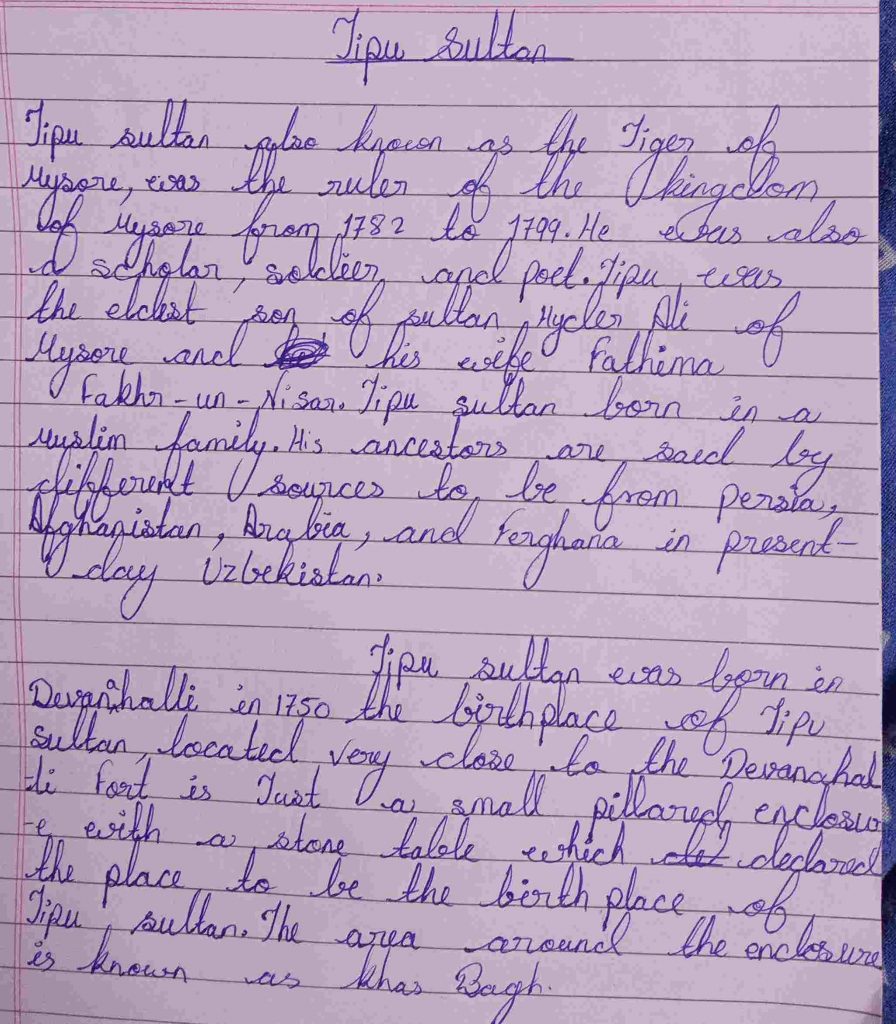 Tipu Sultan
Tipu sultan also known as the Tiger of
Mysore, was the ruler of the kingdom
of Mysore from 1782 to 1799. He was also
a scholar, soldier and poet. Tipu was
the eldest son of sultan Hyder Ali of
Mysore and his wife Fathima
Fakhr-un-Nisar. Tipu sultan born in a
Muslim family. His ancestors are said by
different sources to be from persia,
Afghanistan, Arabia, and Ferghana in present-
day Uzbekistan.
Tipu sultan was born in
Devanahalli in 1750 the birthplace of Tipu
Sultan, located very close to the Devanahal
-li Fort is Just a small pillared enclosu
-e with a stone table which declared
the place to be the birth place of
Tipu sultan. The area around the enclosure
is known as khas Bagh.